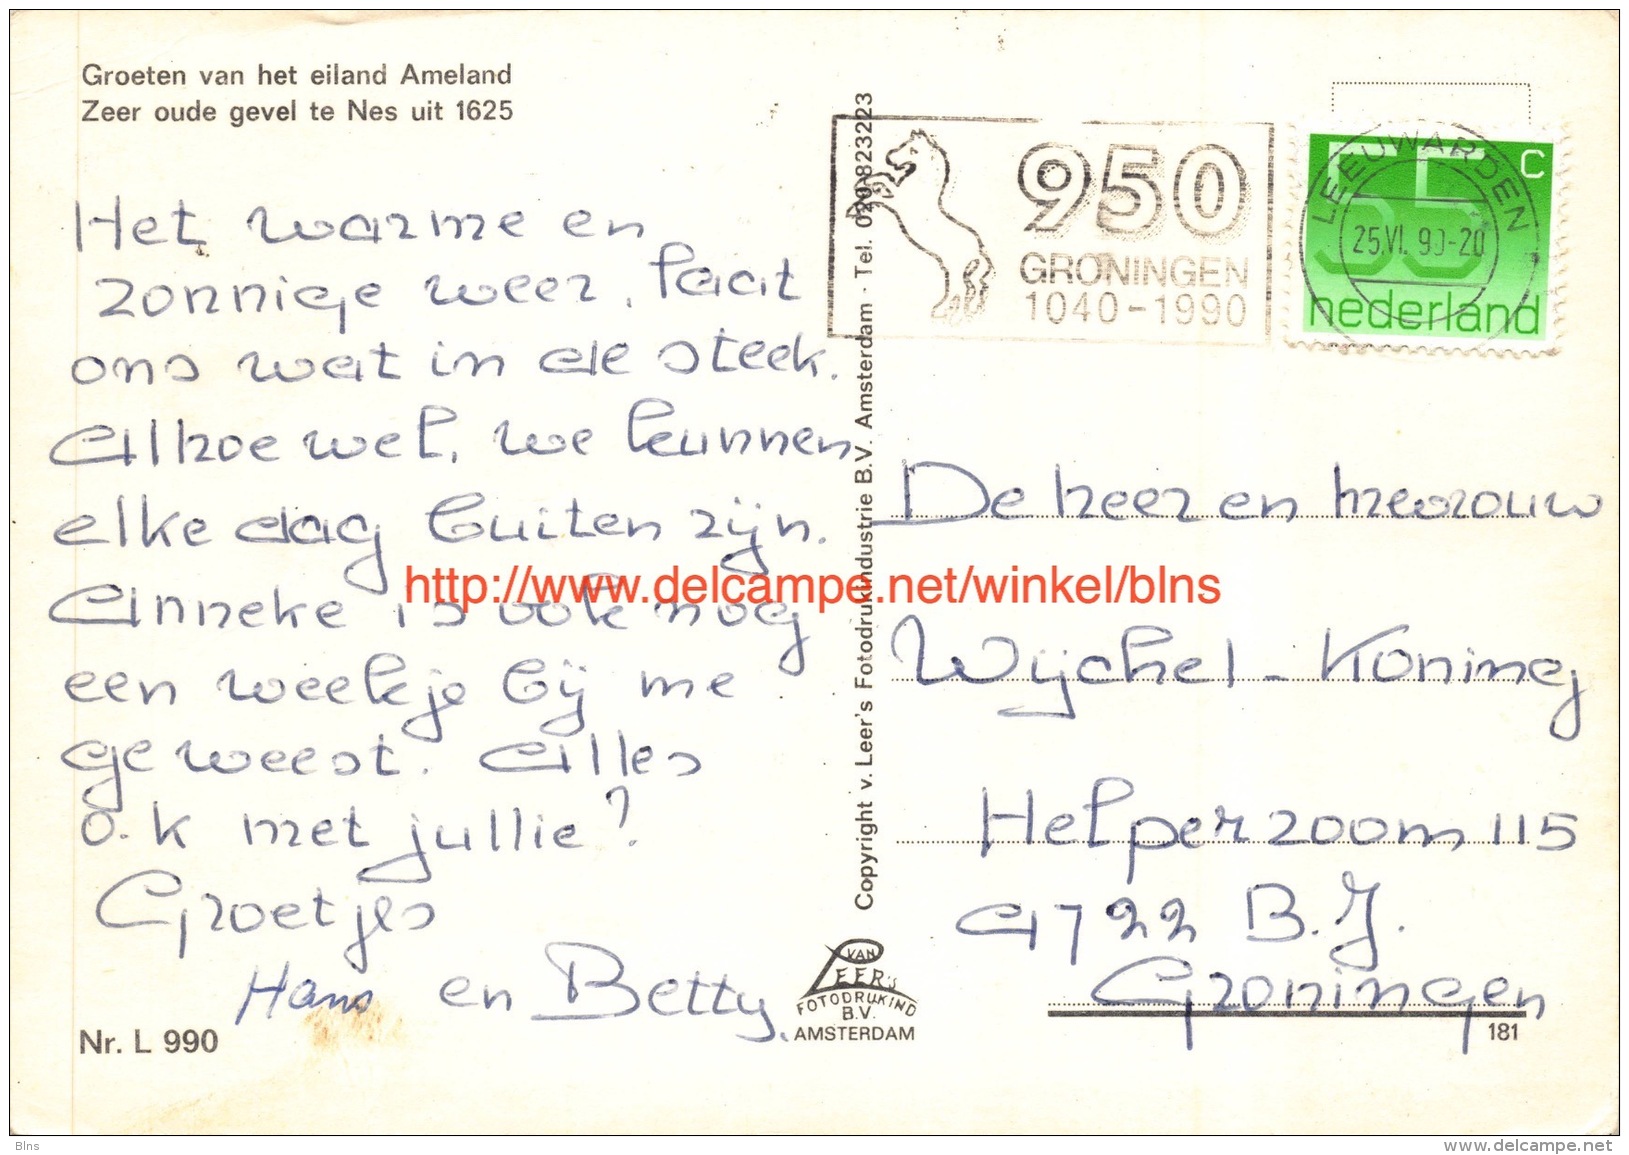 Groeten van het eiland Ameland
Zeer oude gevel te Nes uit 1625
Het warme en
zonnige weer, laat
ons wat in de steek.
Alhoewel, we kunnen
elke dag buiten zijn.
Anneke is ook nog
een weekje bij me
geweest. Alles
o.k met jullie?
Groetjes
Hans en Betty.
Nr. L 990
Copyright v. Leer's Fotodrukindustrie B.V. Amsterdam - Tel. 020-823223
VAN
LEER's
FOTODRUKIND
B.V.
AMSTERDAM
950
GRONINGEN
1040-1990
LEEUWARDEN
25.VI. 90-20
55 c
nederland
De heer en mevrouw
Wijchel - Koning
Helperzoom 115
9722 B.J.
Groningen
181
http://www.delcampe.net/winkel/blns
Blns
www.delcampe.net